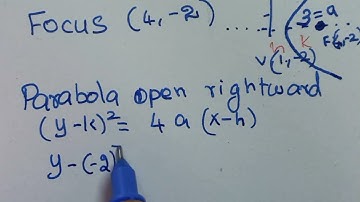 Focus (4,-2)
3=a
F(4,-2)
h k
V(1,-2)
Parabola open rightward
(y-k)²= 4a(x-h)
y-(-2)